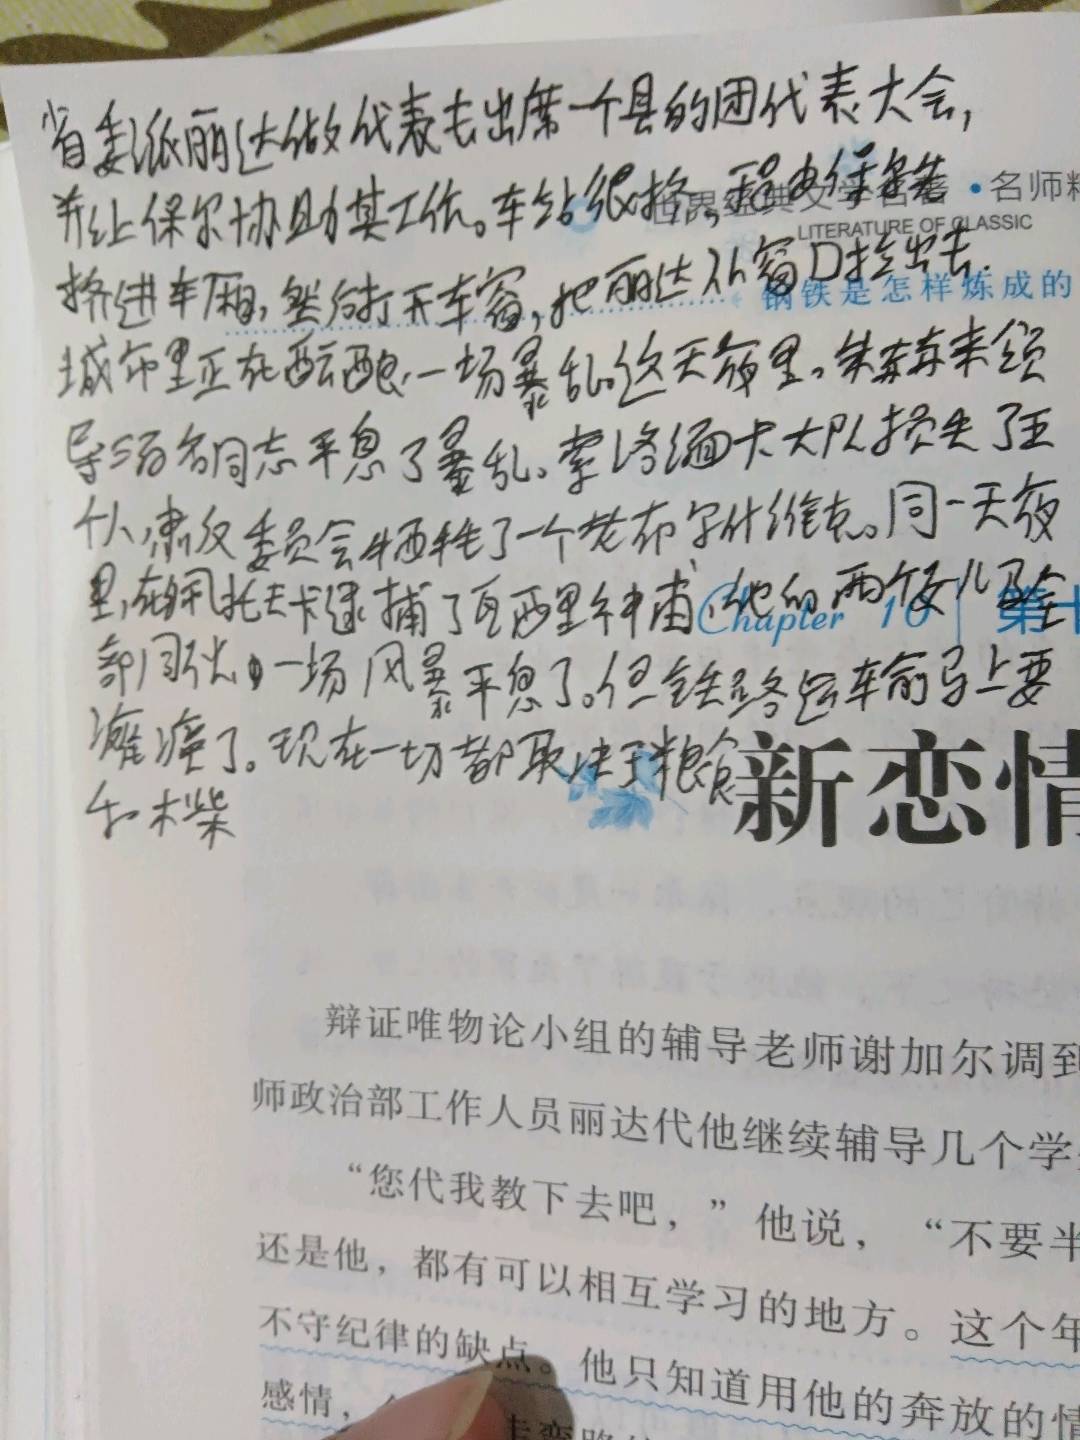 省委派丽达做代表去出席一个县的团代表大会,
并让保尔协助其工作。车站很挤,
世界经典文学名著·名师精
LITERATURE OF CLASSIC
挤进车厢,然后打开车窗,把丽达从窗口拉出去.
钢铁是怎样炼成的
城市里正在酝酿一场暴乱。这天夜里。朱赫来领
导多名同志平息了暴乱。索洛缅卡大队损失了五
个人,肃反委员会牺牲了一个老布尔什维克。同一天夜
里,在佩托夫卡逮捕了瓦西里神甫,他的两个女儿及全
Chapter 10
部同伙。一场风暴平息了。但铁路运输马上要
瘫痪了。现在一切都取决于粮食
和木柴
新恋情
辩证唯物论小组的辅导老师谢加尔调到
师政治部工作人员丽达代他继续辅导几个学
“您代我教下去吧,”他说,“不要半
还是他,都有可以相互学习的地方。这个年
不守纪律的缺点。他只知道用他的奔放的情
感情,